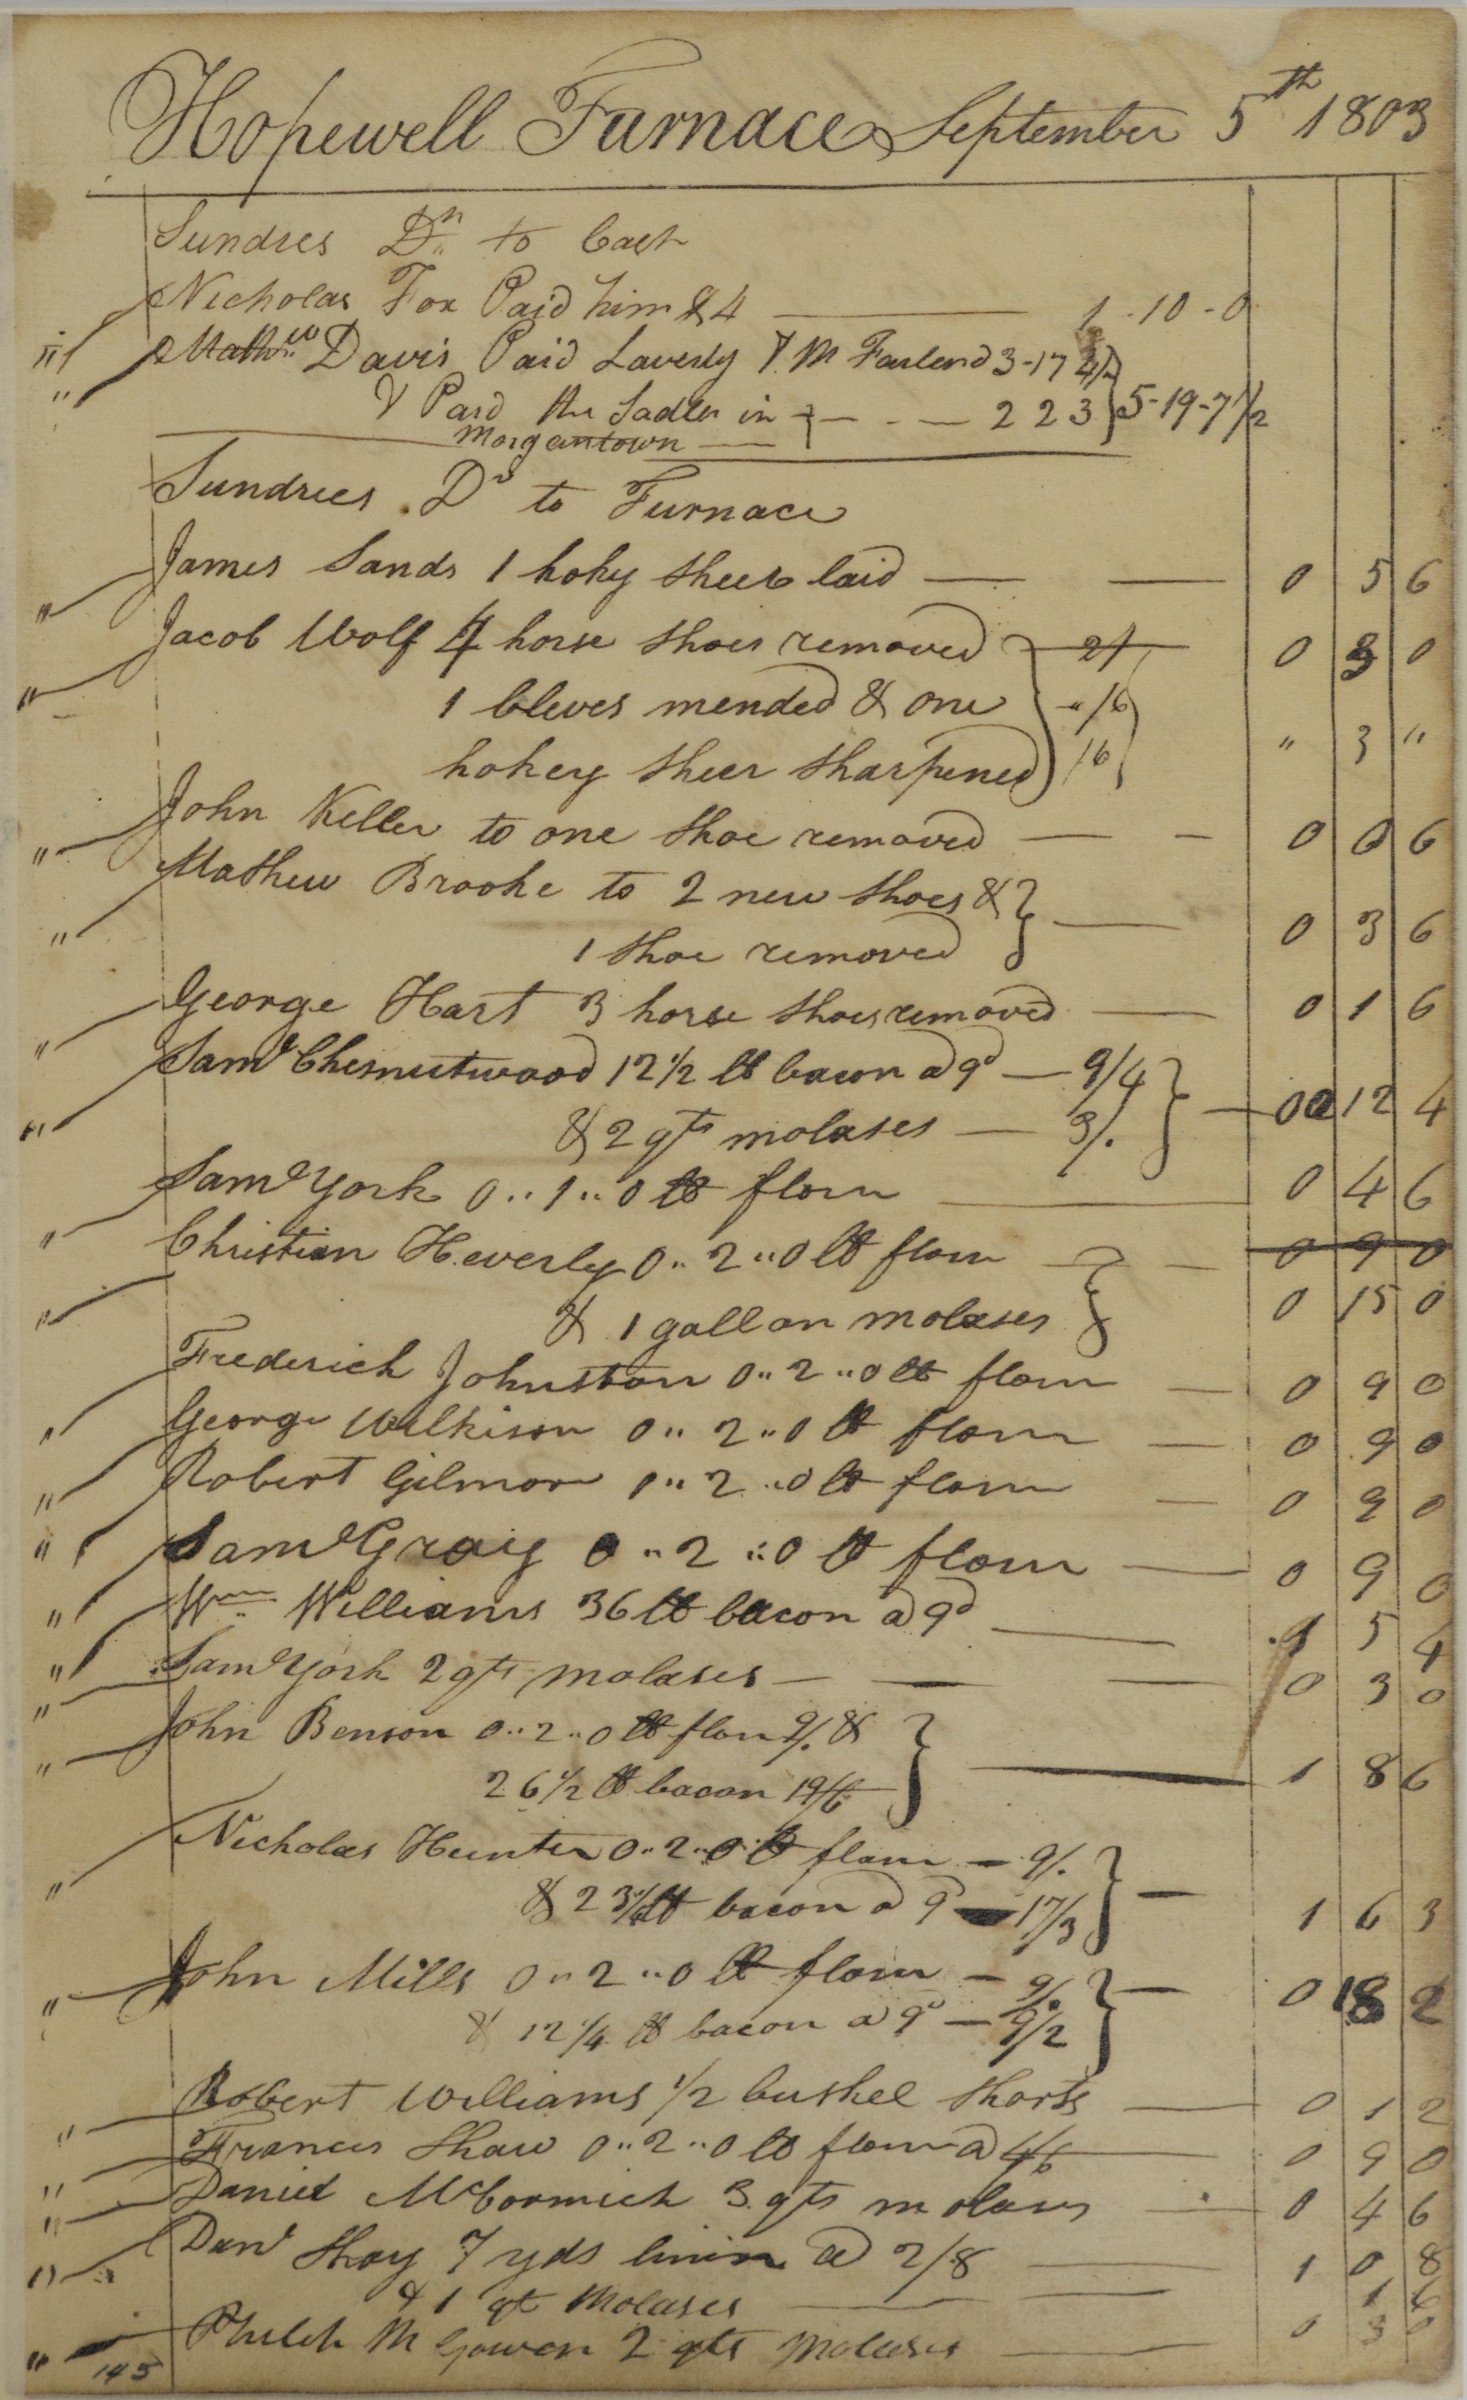 Hopewell Furnace September 5th 1803
Sundres Dr to Cash
Nicholas Fox Paid him $4 1-10-0
Mathw Davis Paid Laverty & McFarlend 3-17 4½
& Paid the Sadler in 2 2 3 5-19-7½
Morgantown
Sundries Dr to Furnace
James Sands 1 hoky sheer laid 0 5 6
Jacob Wolf 4 horse shoes removed 2/ 0 3 0
1 cleves mended & one "/6
hokey sheer sharpened /6 " 3 "
John Keller to one shoe removed 0 0 6
Mathew Brooke to 2 new shoes &
1 shoe removed 0 3 6
George Hart 3 horse shoes removed 0 1 6
Saml Chesnutwood 12½ lb bacon a 9d 9/4
& 2 qts molases 3/. 0 12 4
Saml York 0"1"0 lb flour 0 4 6
Christian Heverly 0"2"0 lb flour 0 9 0
& 1 gallon molases 0 15 0
Frederich Johnston 0"2"0 lb flour 0 9 0
George Wilkison 0"2"0 lb flour 0 9 0
Robert Gilmore 0"2"0 lb flour 0 9 0
Saml Graig 0"2"0 lb flour 0 9 0
Wm Williams 36 lb bacon a 9d 1 5 4
Saml York 2 qts molases 0 3 0
John Benson 0"2"0 lb flour 9/. &
26½ lb bacon 19/6 1 8 6
Nicholas Hunter 0"2"0 lb flour 9/.
& 23 lb bacon a 9d 17/3 1 6 3
John Mills 0"2"0 lb flour 9/.
& 12¼ lb bacon a 9d 9/2 0 18 2
Robert Williams ½ bushel shorts 0 1 2
Frances Shaw 0"2"0 lb flour a 4/6 0 9 0
Daniel McCormick 3 qts molases 0 4 6
Danl Shay 7 yds linin @ 2/8 1 0 8
& 1 qt Molases 1 6
Philih McGowen 2 qts Molases 0 3 0
145